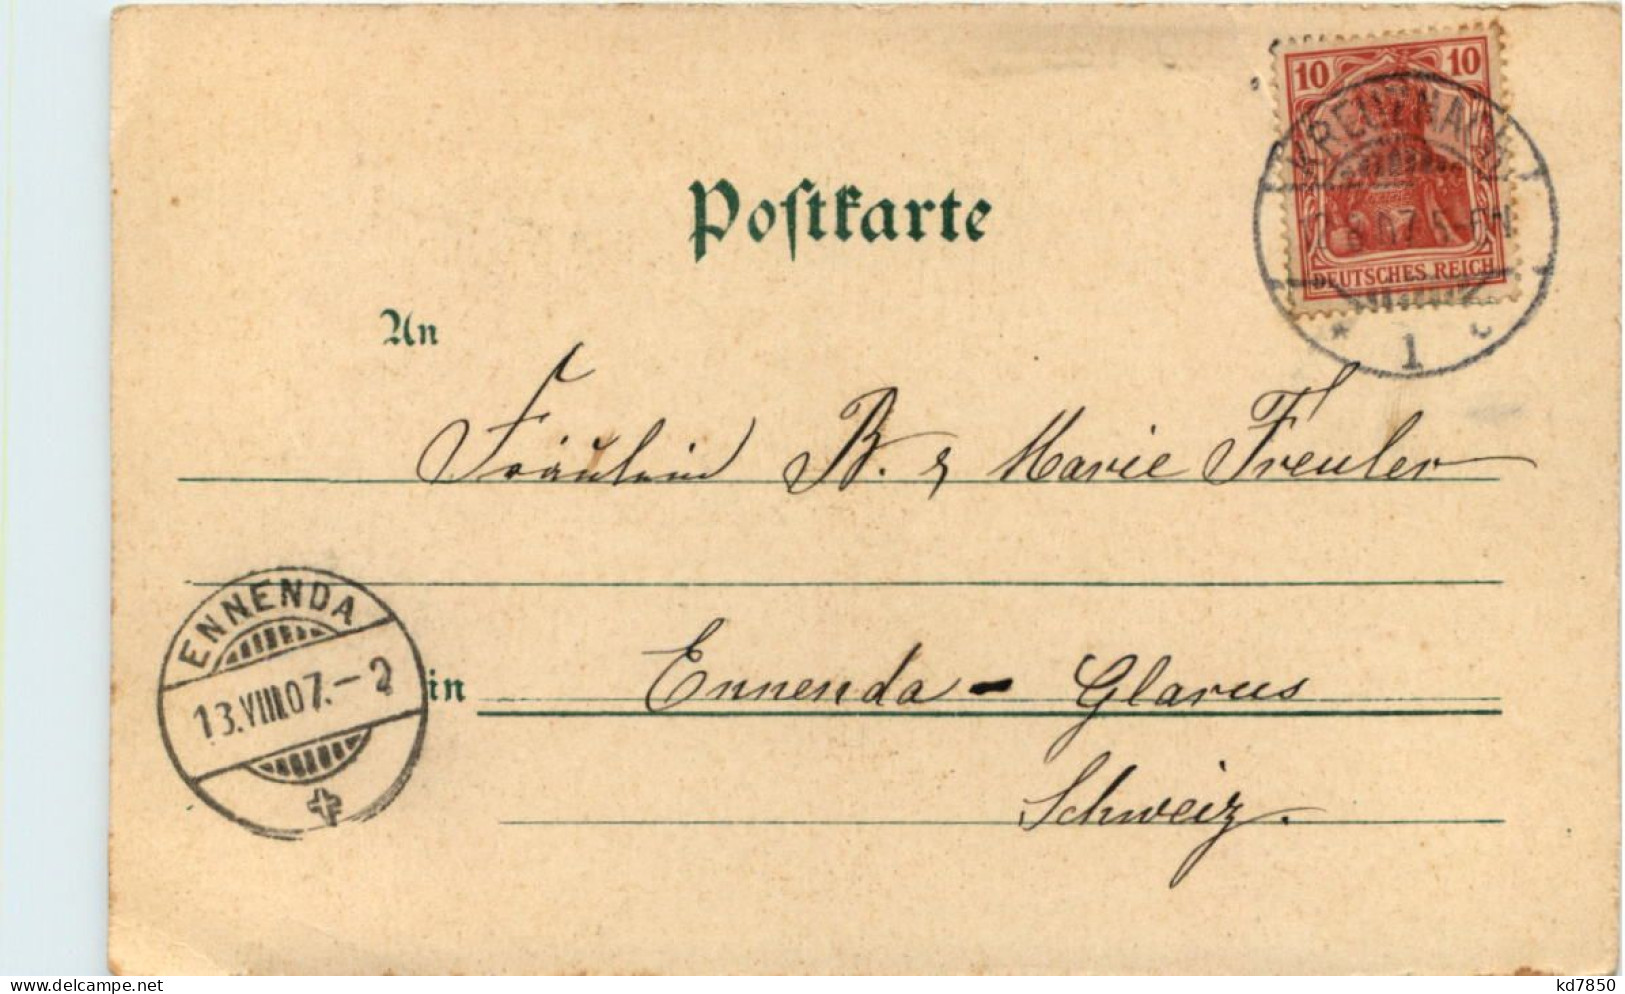 10 10
DEUTSCHES REICH
KREUZNACH
8.07.5-6N
1 c
Postkarte
An
Fräulein B. & Marie Freuler
ENNENDA
13.VIII.07.-2
in Ennenda - Glarus
Schweiz.
delcampe.net
kd7850